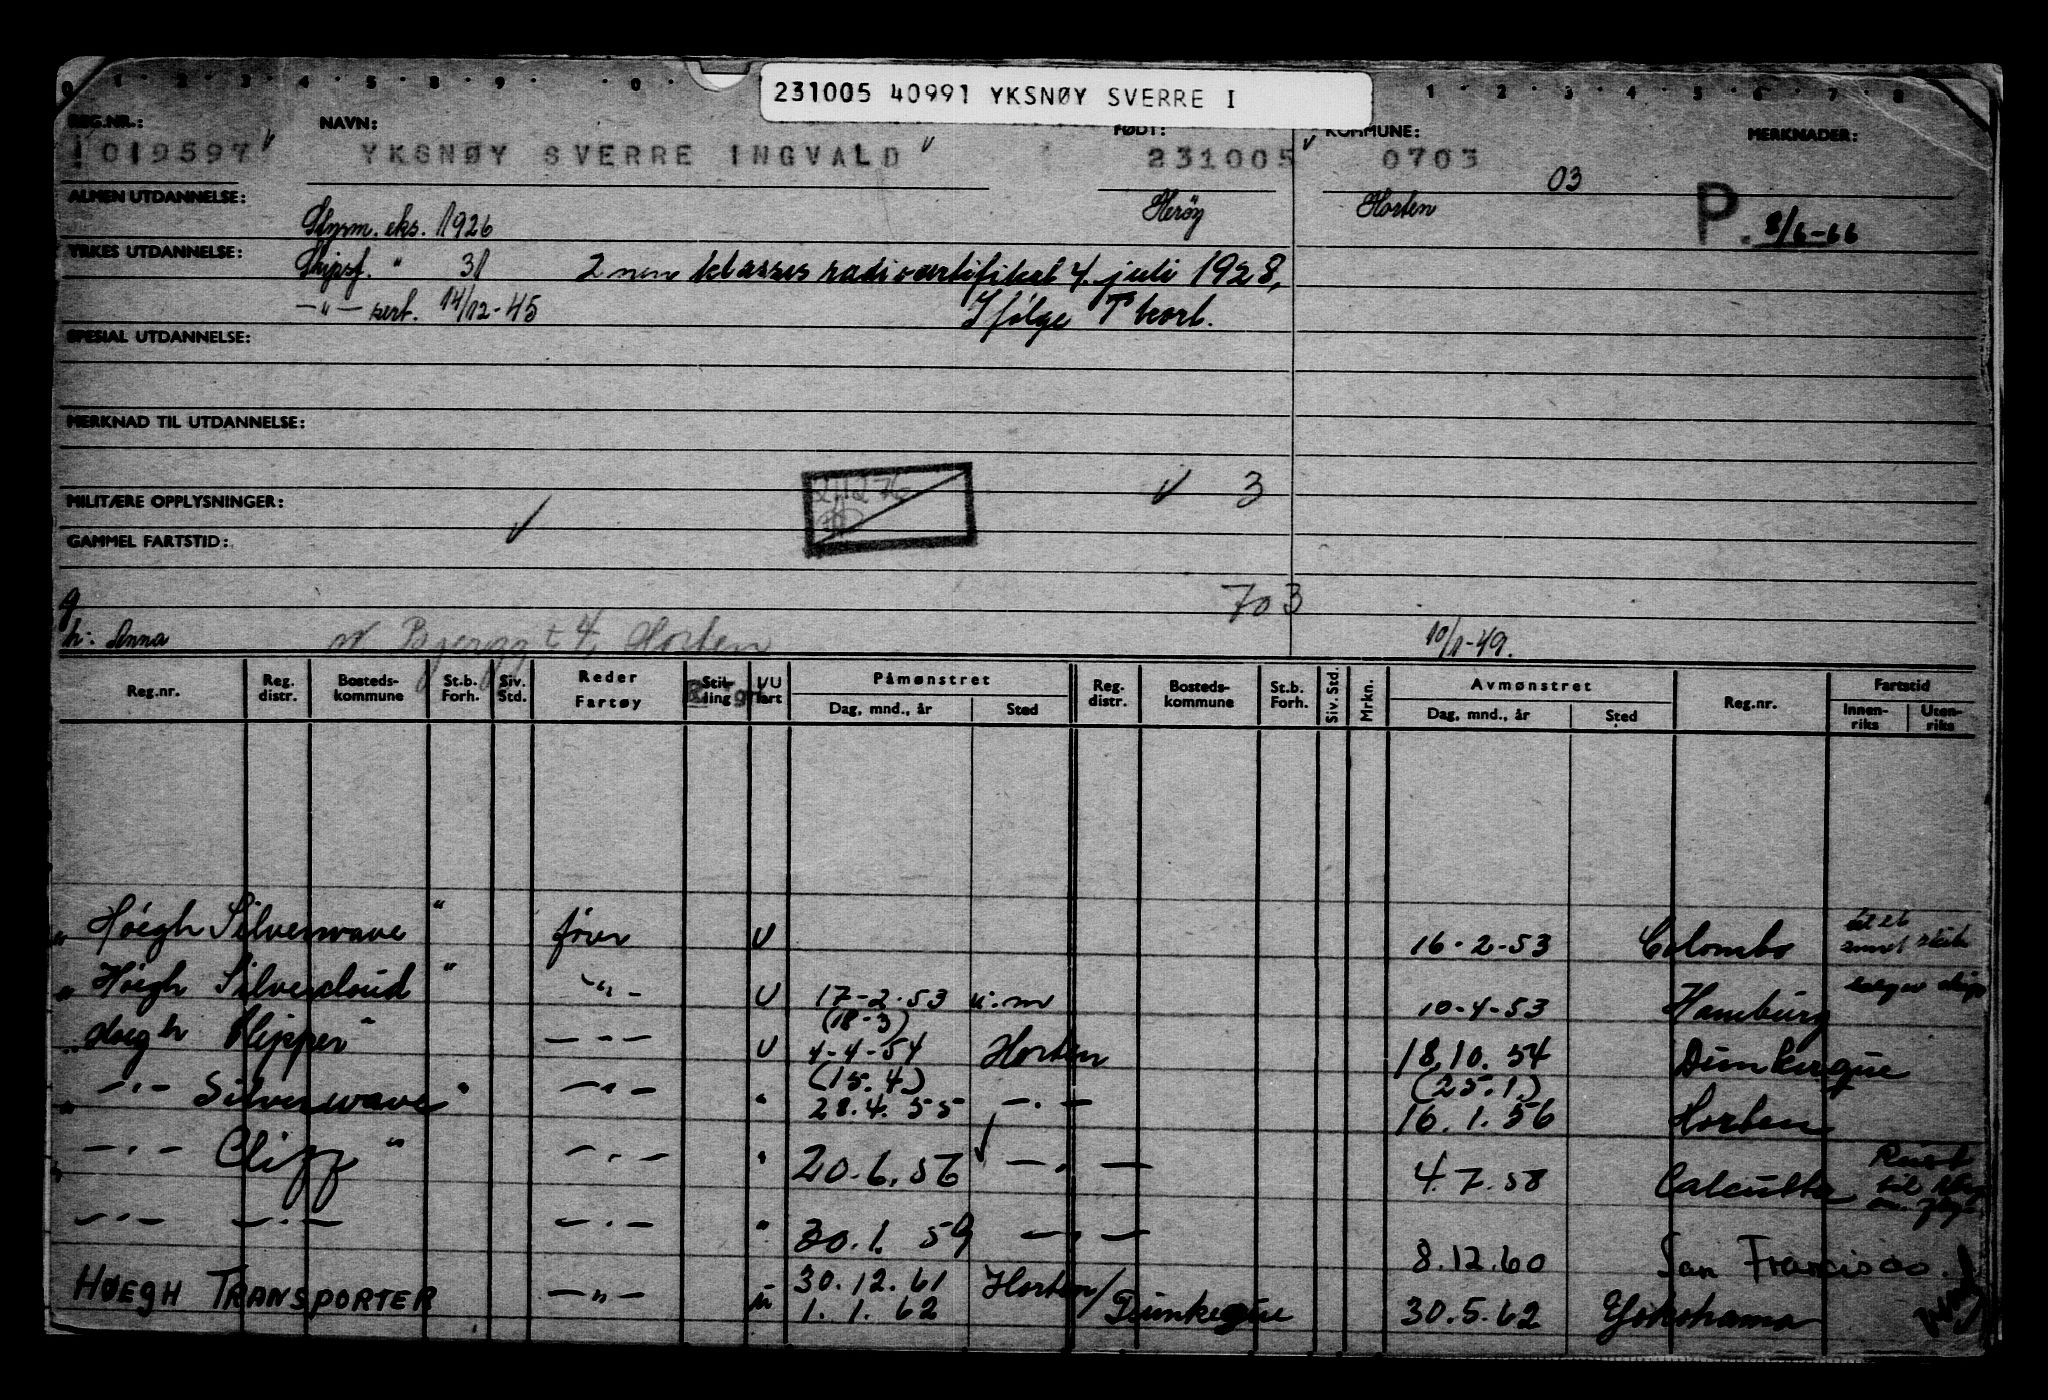 231005 40991 YKSNØY SVERRE I
REG.NR.: NAVN: FØDT: KOMMUNE: MERKNADER:
1019597 YKSNØY SVERRE INGVALD 231005 0703
03
ALMEN UTDANNELSE: Styrm. eks. 1926 Herøy Horten P. 8/6-66
YRKES UTDANNELSE: Skipsf. " 31 2nen klasses radiosertifikat 4. juli 1928,
—"— sert. 14/12-45 Ifølge T kort.
SPESIAL UTDANNELSE:
MERKNAD TIL UTDANNELSE:
3
MILITÆRE OPPLYSNINGER:
GAMMEL FARTSTID:
703
h: Anna Horten 10/1-49.
Reg.nr. Reg. distr. Bosteds-kommune St.b. Forh. Siv. Std. Reder Fartøy Stilling I/U fart Påmønstret Dag, mnd., år Sted Reg. distr. Bosteds-kommune St.b. Forh. Siv. Std. Mrkn. Avmønstret Dag, mnd., år Sted Reg.nr. Fartstid Innen-riks Uten-riks
" Høegh Silverwave " fører U 16-2-53 Colombo
" Høegh Silvercloud " —"— U 17-2-53 u.m 10-4-53 Hamburg
(18-3)
" Høegh Clipper " —"— U 4-4-54 Horten 18.10.54 Dunkerque
(15.4.) (25.1.)
" —"— Silverwave " —"— " 28.4.55 —"— 16.1.56 Horten
" —"— Cliff " —"— " 20.6.56 —"— 4.7.58 Calcutta
—"— —"— —"— " 30.1.59 —"— 8.12.60 San Francisco.
30.12.61 Horten/
HØEGH TRANSPORTER —"— u 1.1.62 Dunkerque 30.5.62 Yokohama